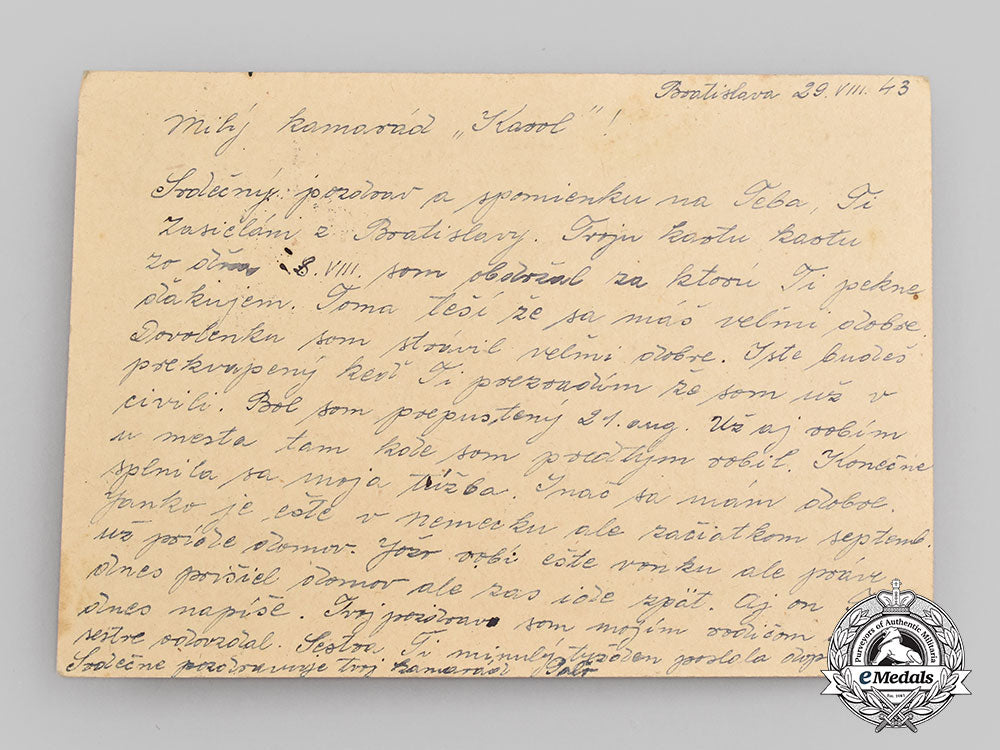 Bratislava 29. VIII. 43
Milý kamarád „Karol"!
Srdečný pozdrav a spomienku na Teba, Ti
zasielám z Bratislavy. Tvoju kartu kartu
zo dňa 8. VIII. som obdržal za ktorú Ti pekne
ďakujem. Toma teší že sa máš veľmi dobre.
Dovolenku som strávil veľmi dobre. Iste budeš
prekvapený keď Ti prezradím že som už v
civili. Bol som prepustený 21. aug. Už aj robím
u mesta tam kde som predtým robil. Konečne
splnila sa moja túžba. Ináč sa mám dobre.
Janko je ešte v nemecku ale začiatkom septemb.
už príde domov. Jožo robí ešte vonku ale práve
dnes prišiel domov ale zas ide zpät. Aj on
dnes napíše. Tvoj pozdrav som mojím rodičom
sestre odovzdal. Sestra Ti minulý týždeň poslala
Srdečne pozdravuje tvoj kamarád
Purveyors of Authentic Militaria
eMedals